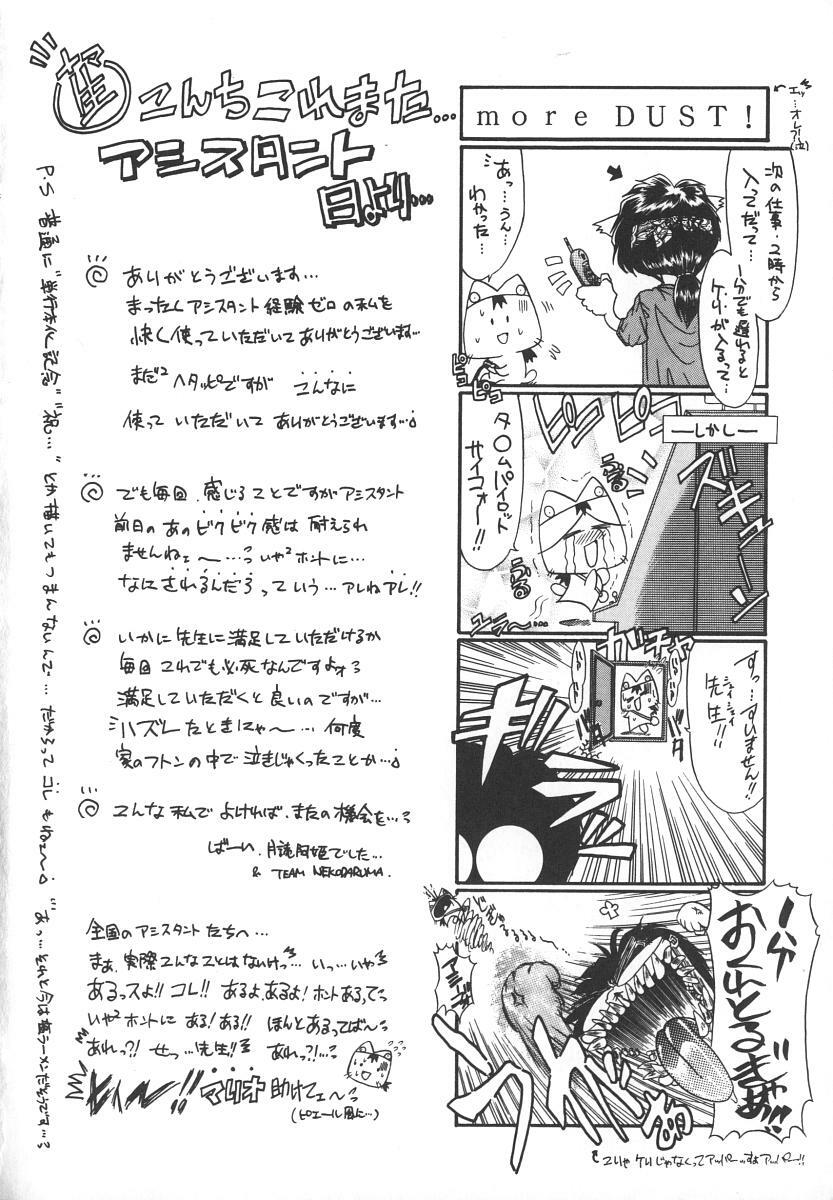 こんちこれまた…
アシスタント
日より…
ありがとうございます…
まったくアシスタント経験ゼロの私を
快く使っていただいてありがとうございます…
まだ²ヘタッピですが こんなに
使って いただいて ありがとうございます…
でも毎回、感じることですがアシスタント
前日のあのビクビク感は耐えられ
ませんねェ〜…っいや²ホントに…
なにされるんだろっていう…アレねアレ!!
いかに先生に満足していただけるか
毎回これでも必死なんですよォっ
満足していただくと良いのですが…
ハズレたときにゃ〜…何度
家のフトンの中で泣きじゃくったことか…
こんな私でよければ、またの機会を…っ
ばーい、
でした…
& TEAM NEKODARUMA.
全国のアシスタントたちへ…
まぁ、実際こんなことはないけっ…いっ…いや
あるっスよ!! コレ!! あるよ、あるよ! ホントあるって
いや²ホントに ある!ある!! ほんとあるってば〜っ
あれっ?! せっ…先生!! あれっ?!…っ
マリオ助けてェ〜っ
(ピエール風に…)
P.S 普通に"単行本化記念""祝…"とか描いてもつまんないんで…だからってコレもねェ〜
"あっ…ちなみに今は塩ラーメンだそうです…っ
more DUST!
エッ…オレ?!(泣)
次の仕事、2時から
入ってだって…
1分でも遅れると
ケリが入るって…
あっ…うん…
わかった…
ピョコ
ピョコ
―しかし―
ズキューン
ピコ
ピコ
タ〇ムパイロット
サイコォー!!
ぶる
ぶる
ユラ〜…
ガチャ
すっ…すいません!!
先生!!
バタ
1分
おくれとるぎゃあ!!